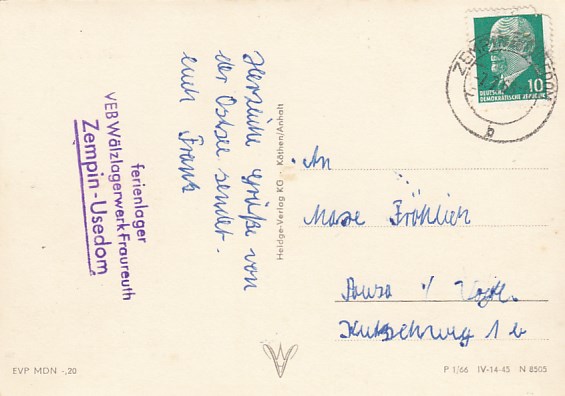 ferienlager
VEB Wälzlagerwerk Fraureuth
Zempin-Usedom
Herzliche Grüße von
der Ostsee sendet
euch Frank
Heldge-Verlag KG - Köthen/Anhalt
10
DEUTSCHE
DEMOKRATISCHE REPUBLIK
b
An
Fröhlich
1 b
EVP MDN -,20
P 1/66 IV-14-45 N 8505